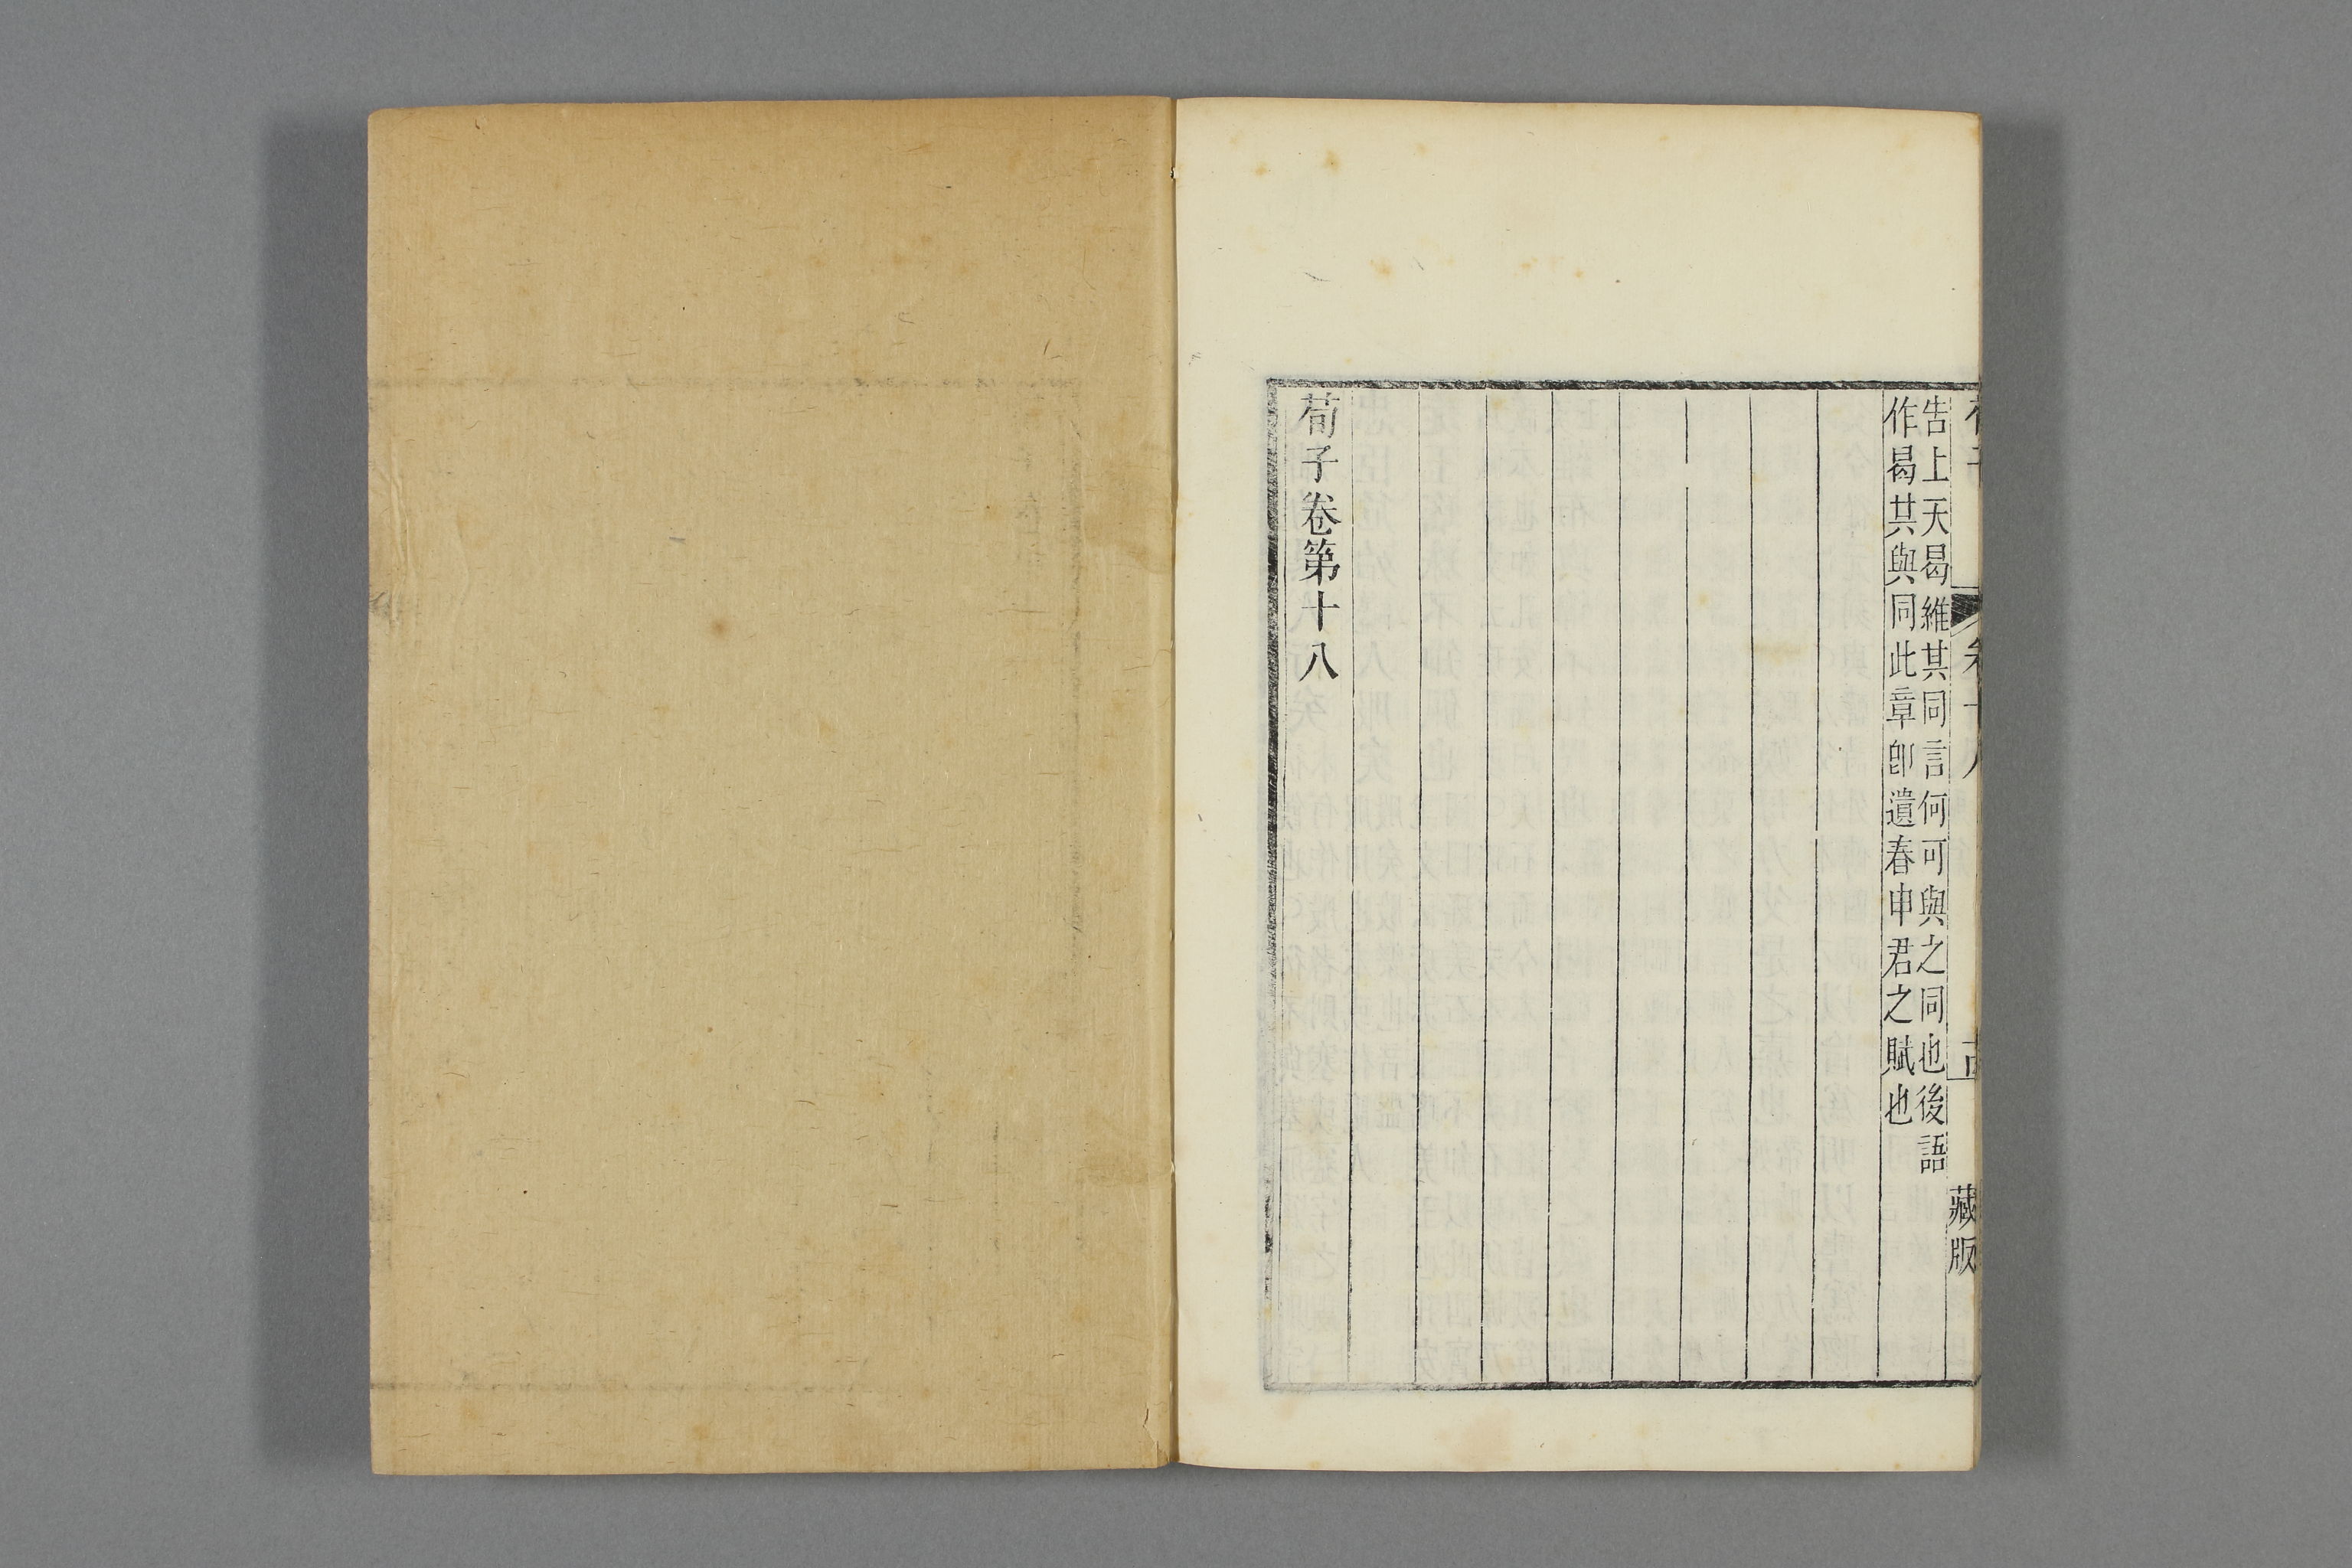 告上天曷維其同言何可與之同也後語
作曷其與同此章卽遺春申君之賦也
荀子卷第十八
藏版